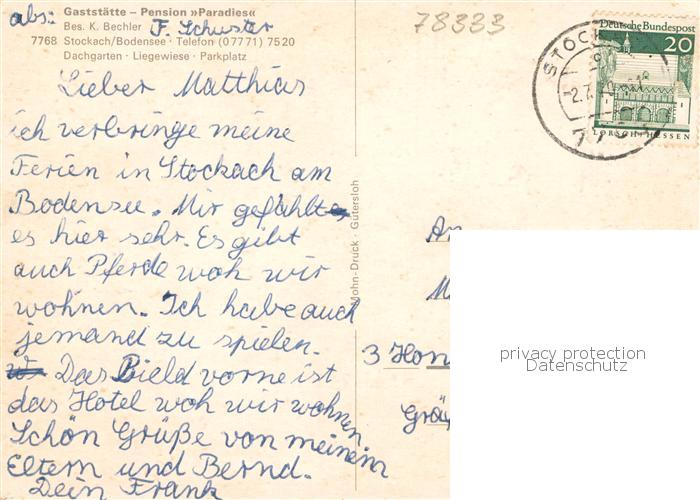 abs: F. Schuster
Gaststätte – Pension »Paradies«
Bes. K. Bechler
7768 Stockach/Bodensee · Telefon (07771) 7520
Dachgarten · Liegewiese · Parkplatz
78333
Deutsche Bundespost
20
LORSCH+HESSEN
STOCK
2.7.
Lieber Matthias
ich verbringe meine
Ferien in Stockach am
Bodensee. Mir gefählt
es hier sehr. Es gibt
auch Pferde woh wir
wohnen. Ich habe auch
jemand zu spielen.
Das Bield vorne ist
das Hotel woh wir wohnen
Schön Grüße von meinem
Eltern und Bernd.
Dein Frank
Mohn-Druck · Gütersloh
An
M
3 Han
Grä
privacy protection
Datenschutz